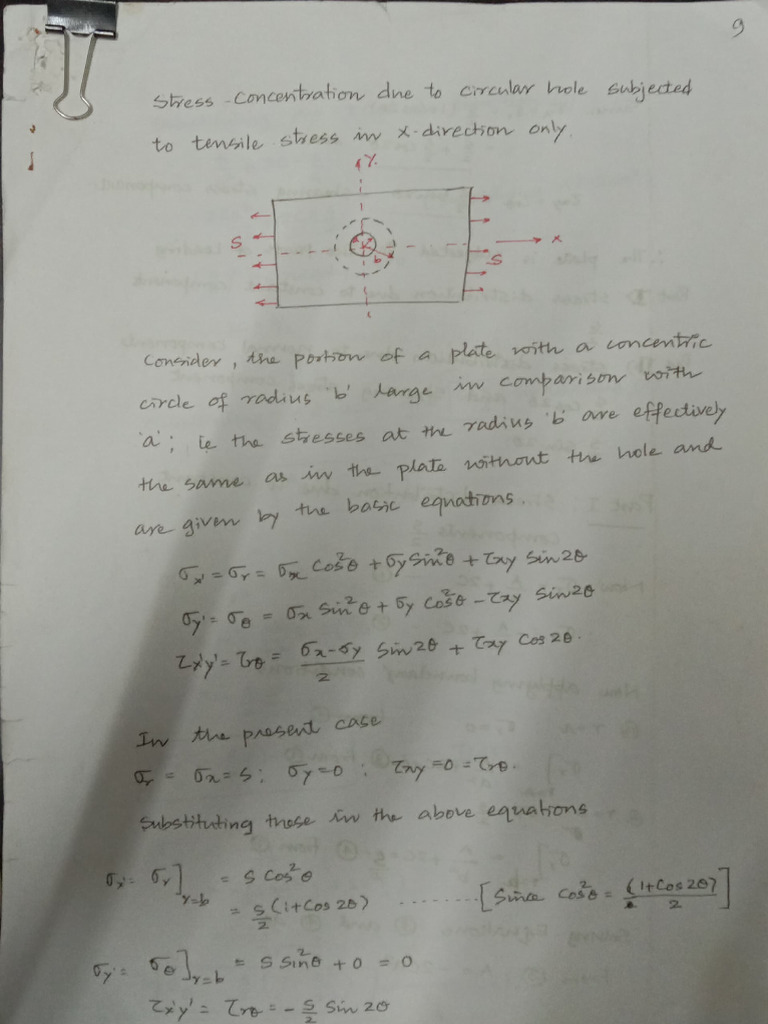 9
Stress Concentration due to circular hole subjected
to tensile stress in x-direction only.
Y
S
b
S
x
Consider, the portion of a plate with a concentric
circle of radius 'b' large in comparison with
'a'; ie the stresses at the radius 'b' are effectively
the same as in the plate without the hole and
are given by the basic equations.
σx' = σr = σx Cos²θ + σy Sin²θ + τxy Sin2θ
σy' = σθ = σx Sin²θ + σy Cos²θ - τxy Sin2θ
τx'y' = τrθ = (σx-σy)/2 Sin2θ + τxy Cos2θ.
In the present case
σr = σx = S; σy=0; τxy=0=τrθ.
Substituting these in the above equations
σx' = σr]r=b = S Cos²θ
= S/2 (1+Cos2θ) ........[Since Cos²θ = (1+Cos2θ)/2]
σy' = σθ]r=b = S Sin²θ + 0 = 0
τx'y' = τrθ = -S/2 Sin2θ